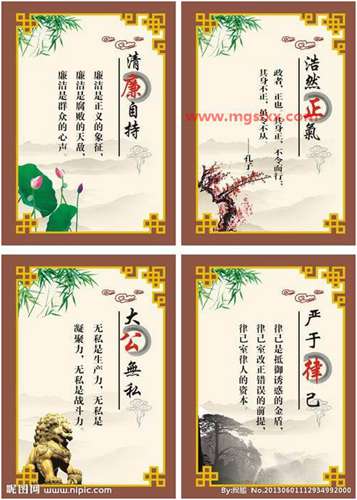 清廉自持
廉洁是正义的象征，
廉洁是腐败的天敌，
廉洁是群众的心声。
浩然正氣
政者，正也；其身正，不令而行；
其身不正，虽令不从
——孔子
www.mgsxx.com
大公無私
无私是生产力，无私是
凝聚力，无私是战斗力。
严于律己
律己是抵御诱惑的金盾，
律己室改正错误的前提，
律己室律人的资本。
昵图网
www.nipic.com
No.20130601112934992000